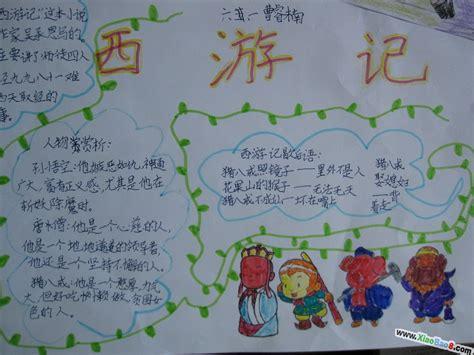 六.(二) 曹睿楠
西游记
西游记"这本小说
作家吴承恩写的
主要讲了师徒四人
经九九八十一难
西天取经的
事.
人物鉴赏析:
孙悟空:他嫉恶如仇,神通
广大,富有正义感,尤其是他在
斩妖除魔时.
唐和尚:他是个心慈的人,
他是一个地地道道的领导者,
他还是个坚持不懈的人.
猪八戒:他是个有力气
大,但好吃懒做,贪图女
色的人.
西游记歇后语:
猪八戒照镜子——里外不是人
花果山的猴子——无法无天
猪八戒不成仙——坏在嘴上
猪八戒
娶媳妇
——背
着走
www.XiaoBao8.com